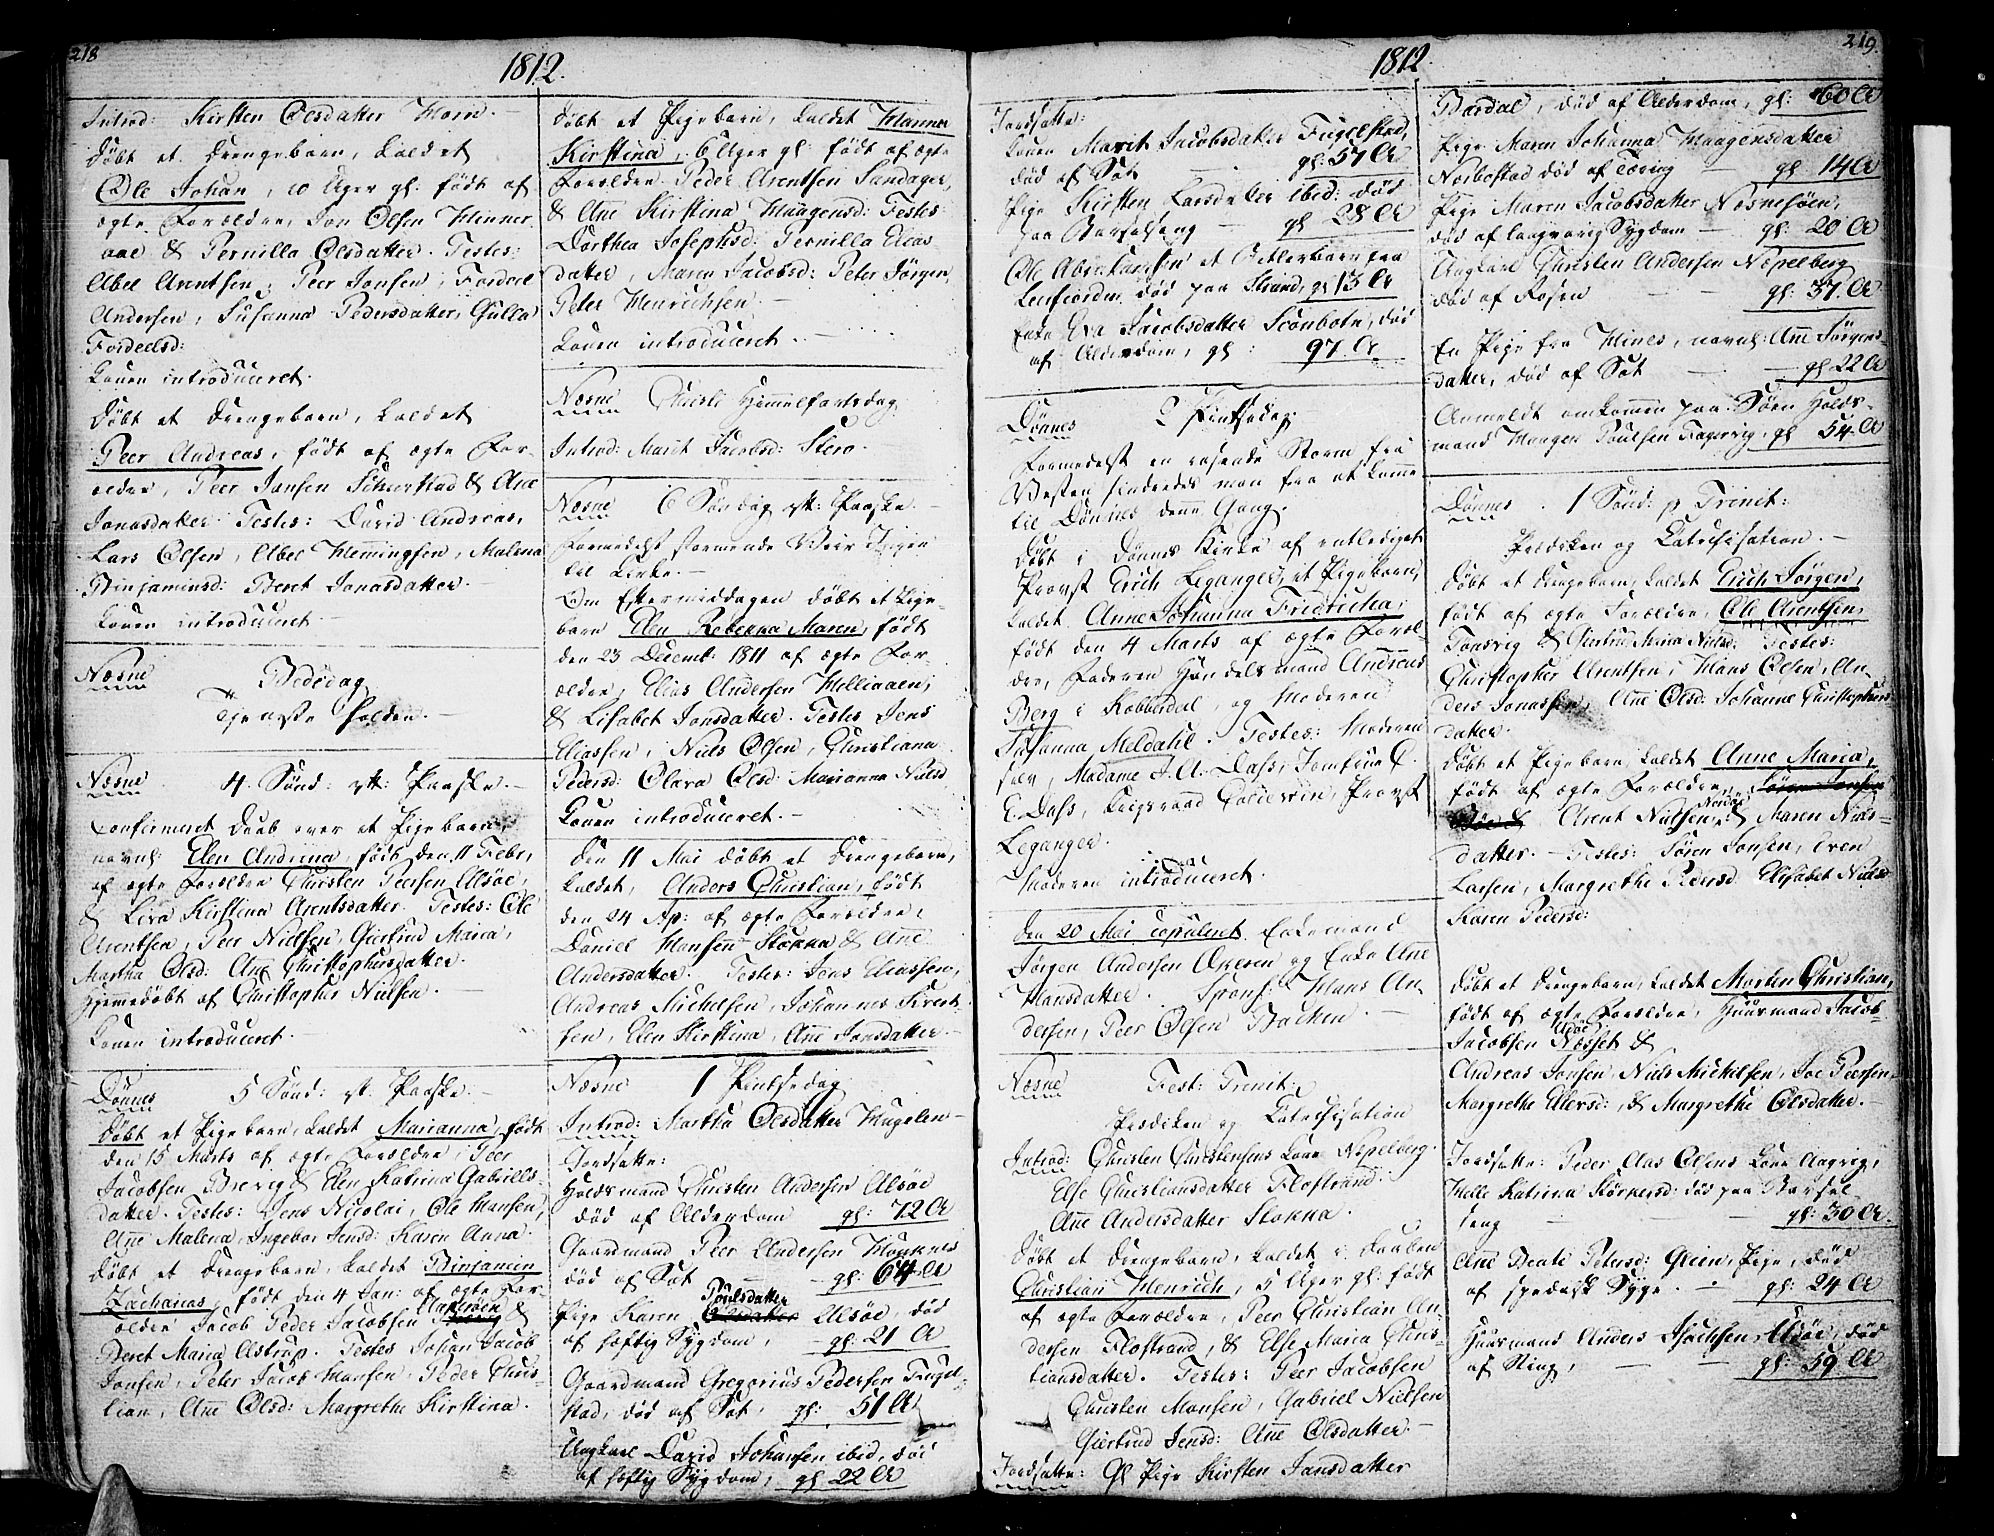 218
1812.
Introd: Kirsten Olsdatter Horn. —
Døbt et Drengebarn, kaldet
Ole Johan, 10 Uger gl: født af
ægte Forældre, Jon Olsen Hinner
aae & Pernilla Olsdatter. Testes:
Abel Arentsen, Peer Jonsen, Fordeel
Andersen, Susanna Pedersdatter, Gulla
Fordeelsd:
Konen introduceret.
Døbt et Drengebarn, kaldet
Peer Andreas, født af ægte For-
ældre, Peer Jansen Schierstad & Ane
Jonasdatter. Testes: David Andreas,
Lars Olsen, Abel Hemmingsen, Malena
Binjaminsd: Beret Jonasdatter. —
Konen introduceret —
Næsne Bededag
Tjeneste holden. —
Næsne 4. Sønd: eft: Paaske. —
Confirmeret Daab over et Pigebarn,
navnl: Elen Andrina, født den 11 Febr,
af ægte Forældre Christen Peersen Alsøe,
& Liva Kirstina Arentsdatter. Testes: Ole
Arentsen, Peer Nielsen, Giertrud Maria,
Martha Olsd: Ane Christophersdatter.
Hjemmedøbt af Christopher Nielsen. —
Konen introduceret.
Dønnes 5 Sønd: eft: Paaske. —
Døbt et Pigebarn, kaldet Marianna, født
den 15 Marts af ægte Forældre, Peer
Jacobsen Brevig & Elen Katrina Gabriels-
datter. Testes: Jens Nicolai, Ole Hansen,
Ane Malena, Ingebor Jensd: Karen Anna.
Døbt et Drengebarn, kaldet Binjamin
Zacharias, født den 4 Jan: af ægte For-
ældre Jacob Peder Jacobsen &
Beret Maria Astrup. Testes Johan Jacob
Jonsen, Peter Jacob Hansen, Peder Chris-
tian, Ane Olsd: Margrethe Kirstina.
Døbt et Pigebarn, kaldet Hanna
Kirstina, 6 Uger gl: født af ægte
Forældre Peder Arentsen Sandager,
& Ane Kirstina Haagensd: Testes
Dorthea Josephsd: Pernilla Elias
datter, Maren Jacobsd: Peter Jørgen,
Peter Henrichsen. —
Konen introduceret. —
Næsne Christi Himmelfartsdag.
Introd: Marit Jacobsd: Stero.
Næsne 6 Søndag eft: Paaske. —
Formedelst stormende Veir Ingen
til Kirke. —
Om Eftermiddagen døbt et Pige-
barn Elen Rebekka Maren, født
den 23 Decemb: 1811 af ægte For-
ældre, Elias Andersen Mellivaen,
& Lisabet Jonsdatter. Testes Jens
Eliassen, Niels Olsen, Christiana
Pedersd: Olava Olsd: Marianna Nielsd
Konen introduceret. —
Den 11 Mai døbt et Drengebarn,
kaldet, Anders Christian, født
den 24 Ap: af ægte Forældre,
Daniel Hansen Stokka & Ane
Andersdatter. Testes: Jens Eliassen,
Andreas Michelsen, Johannes Sivert-
sen, Elen Kirstina, Ane Jonsdatter. —
Næsne 1 Pintsedag
Introd: Martha Olsdatter Hugelen —
Jordfatte:
Holdsmand Christen Andersen Alsøe
død af Alderdom gl: 72 Ar
Gaardmand Peer Andersen Handnes
død af Sot — gl: 64 Ar
Pige Karen Poulsdatter Alsøe død
af heftig Sygdom, — gl: 21 Ar
Gaardmand Gregorius Pedersen Fugel-
stad, død af Sot, gl: 51 Ar
Ungkarl David Johansen ibid, død
af heftig Sygdom, gl 22 Ar
1812. 219.
Jordfatte:
Konen Marit Jacobsdatter Fugelstad,
død af Sot — gl: 57 Ar
Pige Kirsten Larsdatter ibid: død
paa Barselseng — gl 28 Ar
Ole Abrahamsen et Betlerbarn fra
Leirfiorden død paa Strand, gl 13 Ar
Enke Eva Jacobsdatter Sconbotn, død
af Alderdom, gl: 97 Ar
Dønnes 2 Pintsedag.
Formedelst en rasende Storm fra
Vesten hindredes man fra at komme
til Dønnes denne Gang.
Døbt i Dønnes Kirke af entlediget
Provst Erich Leganger, et Pigebarn,
kaldet Anne Johanna Fredricha,
født den 4 Marts af ægte Foræl-
dre, Faderen Handelsmand Andreas
Berg i Kobberdal, og Moderen
Susanna Meldahl. Testes: Moderen
selv, Madame J. A. Dass, Jomfrue C.
E. Dass, Krigsraad Coldevin, Provst
Leganger.
Moderen introduceret.
Den 20 Mai copuleret Enkemand
Jørgen Andersen Okeren og Enke Ane
Hansdatter. Spons: Hans An-
dersen, Peer Olsen Backen. —
Næsne Fest: Trinit:
Prædiken og Catechisation
Introd: Christen Christensens Kone Nepelberg.
Else Christiansdatter Flostrand.
Ane Andersdatter Stokka.
Døbt et Drengebarn, kaldet i Daaben
Christian Henrich, 5 Uger gl: født
af ægte Forældre, Peer Christian An-
dersen Flostrand, & Else Maria Chris-
tiansdatter. Testes: Peer Jacobsen
Christen Hansen, Gabriel Nielsen
Giertrud Jensd: Ane Olsdatter. —
Jordfatte: Gl Pige Kirsten Jansdatter
Bardal, død af Alderdom, gl: 60 Ar
Pige Maren Johanna Haagensdatter
Norbostad død af Tæring — gl: 14 Ar
Pige Maren Jacobsdatter Næsnesøen,
død af langvarig Sygdom — gl: 20 Ar
Ungkarl Christen Andersen Nepelberg
død af Rosen — gl: 37 Ar
En Pige fra Hines, navnl: Ane Jørgens
datter, død af Sot — gl 22 Ar
Anmeldt omkommen paa Søen Holds-
mand Haagen Poulsen Fagervig, gl 54 Ar
Dønnes 1 Sønd: p Trinit:
Prædiken og Catechisation. —
Døbt et Drengebarn, kaldet Erich Jørgen,
født af ægte Forældre, Ole Arentsen,
Tonsvig & Giertrud Maria Nielsd: Testes:
Christopher Arentsen, Hans Olsen, An-
ders Jonassen, Ane Olsd: Johanne Christophers
datter.
Døbt et Pigebarn, kaldet Anne Maria,
født af ægte Forældre,
Arent Nielsen Nordøe & Maren Niels-
datter. — Testes: Søren Jonsen, Even
Larsen, Margrethe Pedersd Elisabet Nielsd
Karen Pedersd:
Døbt et Drengebarn, kaldet Morten Christian,
født af ægte Forældre, Huusmand Jacob
Jacobsen Næsset &
Andreas Jonsen, Niels Michelsen, Joe Peersen,
Margrethe Ellersd: & Margrethe Olsdatter. —
Jordfatte: Peder Clas Olsens Kone Aagvig,
Helle Katrina Størkersd: død paa Barsel
seng — gl: 30 Ar.
Ane Beate Petersd: Glein, Pige, død
af spedalsk Syge. — gl: 24 Ar
Huusmand Anders Isachsen Aldøe, død
af Sting, — gl: 59 Ar